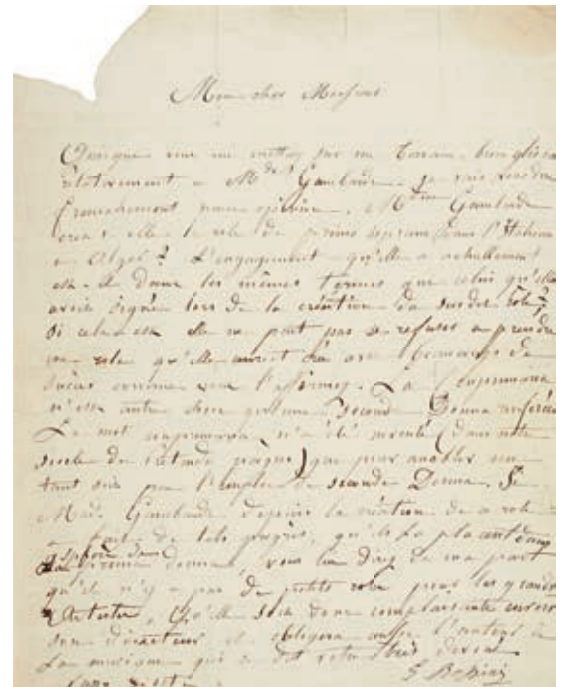 Mon cher Monsieur
Quoique vous me mettiez sur un terrain bien
relativement a Mde Gambardi je vais
franchement mon opinion. Mdme Gambardi
crea t elle le role de primo soprano dans l'Italiana
a Alger? L'engagement qu'elle a actuellement
est-il dans les mêmes termes que celui qu'elle
avoit signé lors de la création du susdit role?
Si cela est elle ne peut pas se refuser a prendre
un role qu'elle avec beaucoup de
succes comme vous l'affirmez. La Comprimaria
n'est autre chose qu'une Seconde Donna
Le mot comprimaria n'a été inventé (dans notre
siecle de ) que pour anoblir un
tant soit peu l'emploi de seconde Donna. Si
Mad. depuis la création de ce role
a fait de tels progrès, qu'ils la placent dans
prima donna, vous lui direz de ma part
qu'il n'y a pas de petits role pour les grands
Artistes, qu'elle soit donc complaisante envers
son directeur et obligera aussi l'auteur de
la musique qui se dit votre très devoué
G. Rossini